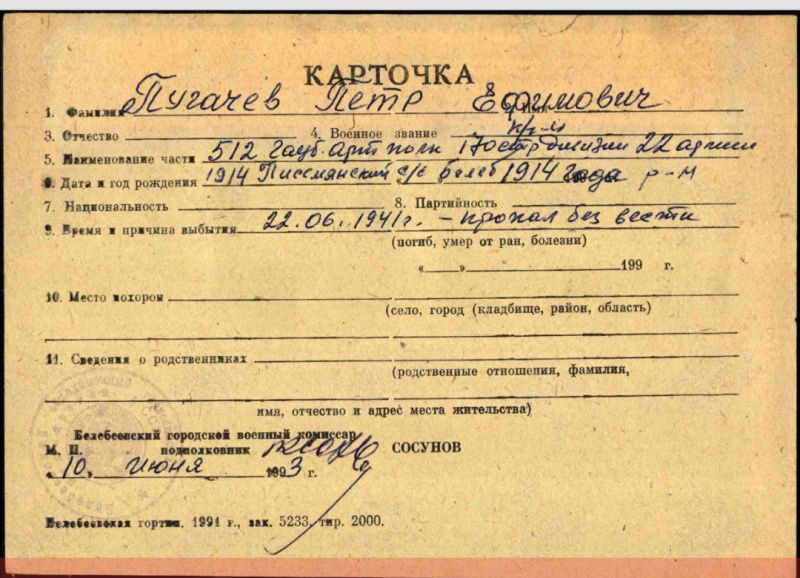 КАРТОЧКА
1. Фамилия Пугачёв Петр Ефимович
3. Отчество 4. Военное звание кр-ц
5. Наименование части 512 гауб. арт полк 170 стр дивизии 22 армии
6. Дата и год рождения 1914 Писсмянский с/с Белеб 1914 года р-н
7. Национальность 8. Партийность
9. Время и причина выбытия 22.06.1941г. - пропал без вести
(погиб, умер от ран, болезни)
« » 199 г.
10. Место похорон
(село, город (кладбище, район, область)
11. Сведения о родственниках
(родственные отношения, фамилия,
имя, отчество и адрес места жительства)
Белебеевский городской военный комиссар
М. П. подполковник СОСУНОВ
„ 10 „ июня 1993 г.
Белебеевская гортип. 1991 г., зак. 5233. тир. 2000.